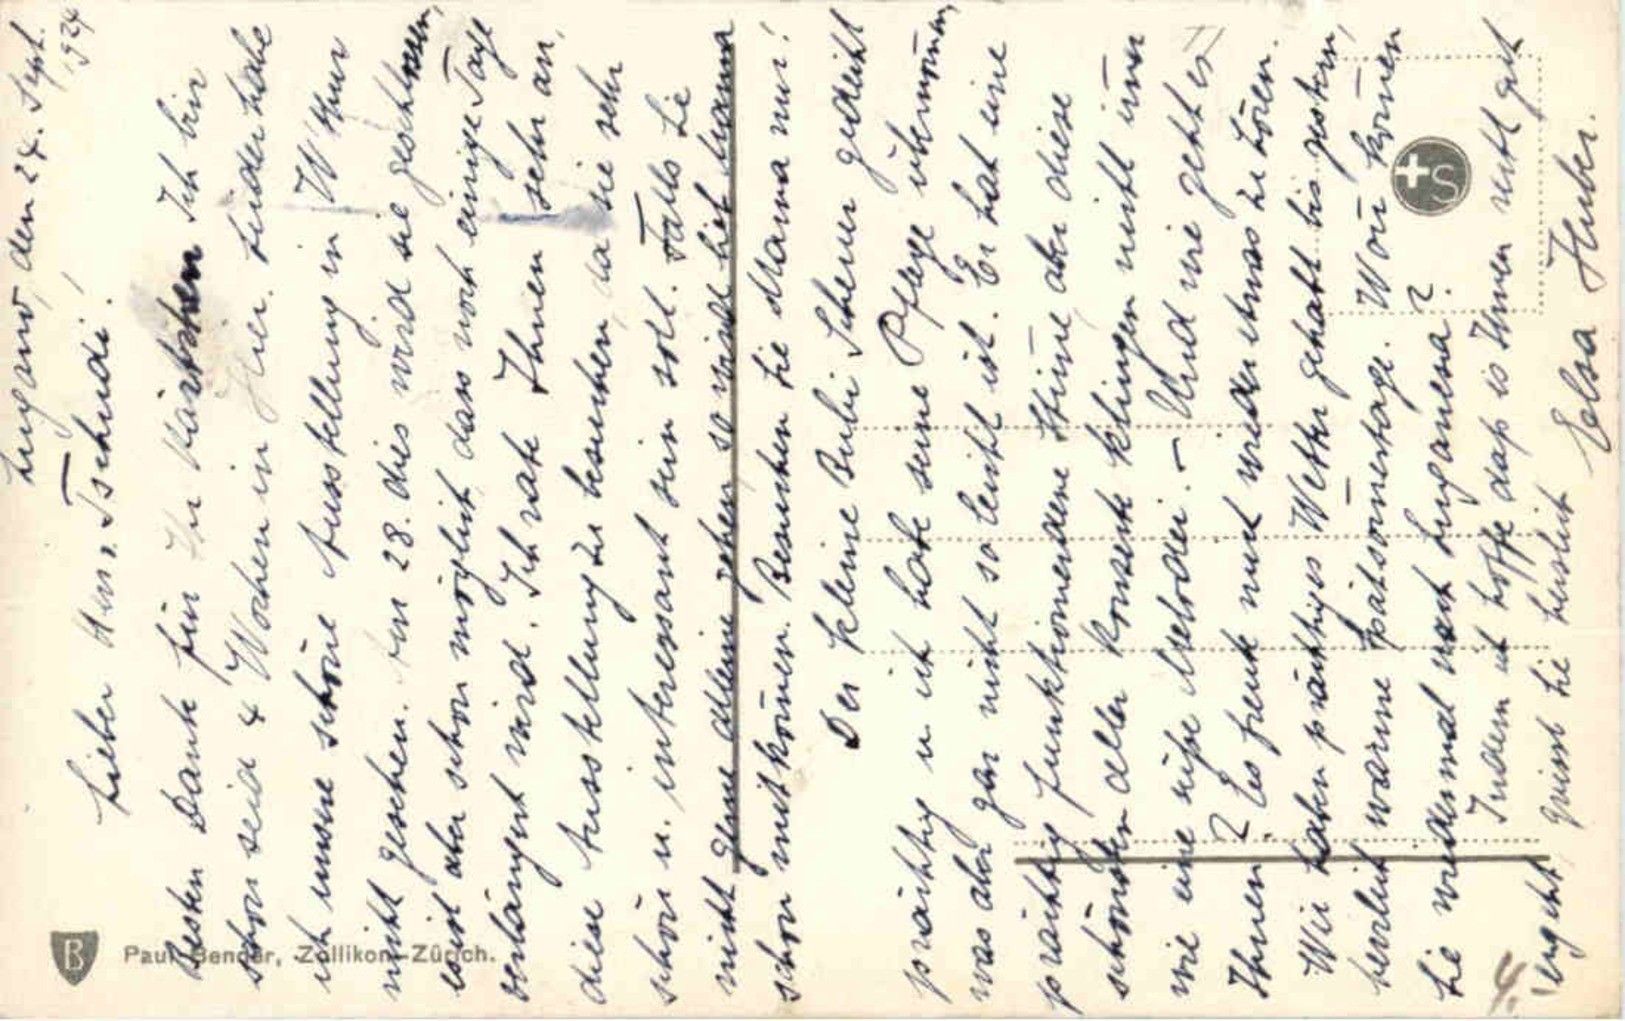 Lugano, den 24. Sept.
1924
Lieber Herr Tschudi!
Besten Dank für Ihr Kärtchen Ich bin
schon seid 4 Wochen in hier. Leider habe
ich unsere schöne Ausstellung in W'thur
nicht gesehen. Am 28. dies wird sie geschlossen,
es ist aber schon möglich, dass noch einige Tage
verlängert wird. Ich rate Ihnen sehr an,
diese Ausstellung zu besuchen, da sie sehr
schön u. interessant sein soll. Falls Sie
nicht gerne alleine gehen so wird
schon mitkom̄en. Besuchen Sie Mama nur!
Der kleine Bubi Scherrer gedeiht
prächtig u ich habe seine Pflege übernom̄en,
was aber gar nicht so leicht ist. Er hat eine
prächtig funktionierende Stim̄e, aber diese
schönsten aller Konzerte klingen nicht im̄er
wie eine süße Melodei. – Und wie geht es
Ihnen? Es freute mich wieder etwas zu hören.
Wir haben prächtiges Wetter gehabt bis gestern,
herrlich warme Spätsom̄ertage. Wan̄ kom̄en
Sie wiedermal nach Luganesa?
Indem ich hoffe, dass es Ihnen recht gut
ergeht, grüsst Sie herzlich
Elsa Huber.
4.
B
Paul Bender, Zollikon-Zürich.
S